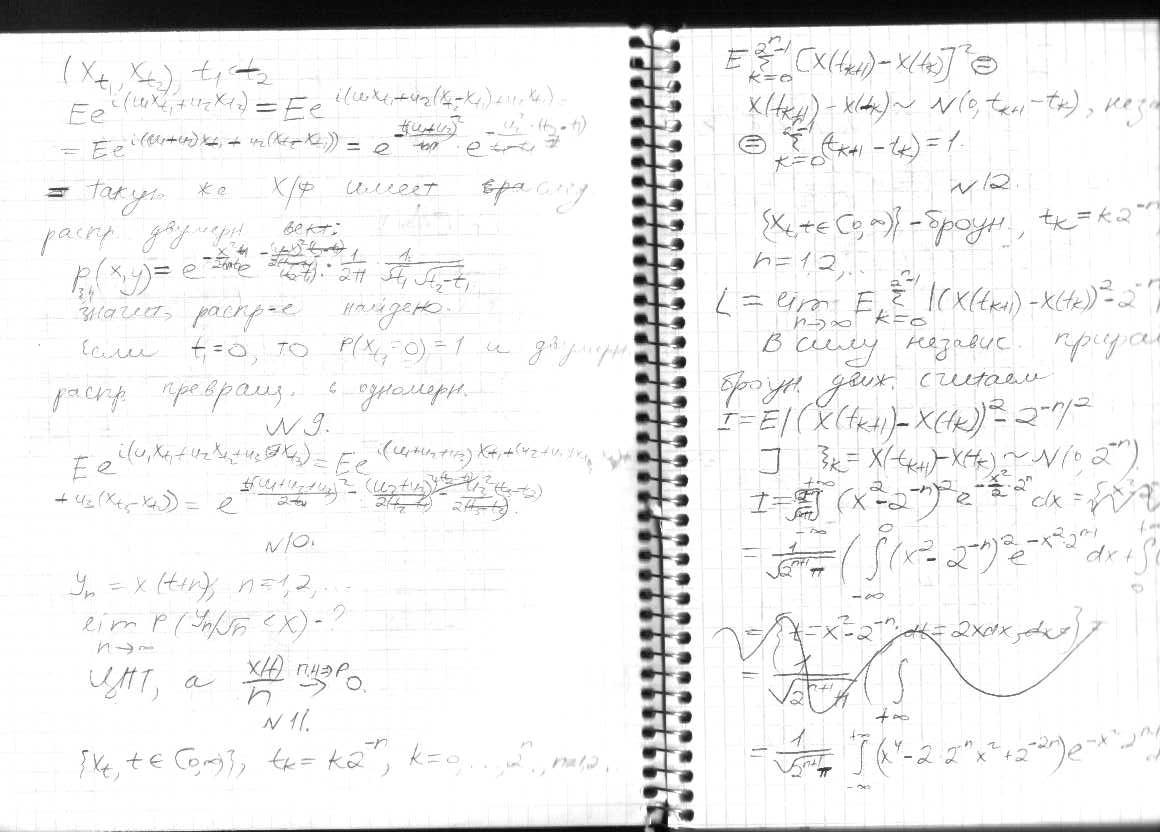 (X_{t_1}, X_{t_2}), t_1 < t_2
Ee^{i(u_1X_{t_1}+u_2X_{t_2})} = Ee^{i(u_1X_{t_1}+u_2(X_{t_2}-X_{t_1})+u_2X_{t_1})} =
= Ee^{i((u_1+u_2)X_{t_1} + u_2(X_{t_2}-X_{t_1}))} = e^{-\frac{t_1(u_1+u_2)^2}{2}} · e^{-\frac{u_2^2·(t_2-t_1)}{2}}
такую же Х/Ф имеет след.
распр. двумерн вект:
p(x,y) = · \frac{1}{2π} · \frac{1}{\sqrt{t_1}\sqrt{t_2-t_1}}
значит, распр-е найдено.
Если t_1=0, то P(X_{t_1}=0)=1 и двумерн
распр. превращ. в одномерн.
N 9.
Ee^{i(u_1X_{t_1}+u_2X_{t_2}+u_3X_{t_3})} = Ee^{i((u_1+u_2+u_3)X_{t_1}+(u_2+u_3)
+ u_3(X_{t_3}-X_{t_2}))} =
N 10.
Y_n = X(t+n), n=1,2,...
lim_{n→∞} P(Y_n/√n < x) - ?
ЦПТ, а \frac{X(t)}{n} → 0.
N 11.
{X_t, t ∈ [0,∞)}, t_k = k2^{-n}, k=0,...,2^n, n=1,2..
E \sum_{k=0}^{2^n-1} [X(t_{k+1}) - X(t_k)]^2 ⊜
X(t_{k+1}) - X(t_k) ~ N(0, t_{k+1} - t_k), неза
⊜ \sum_{k=0}^{2^n-1} (t_{k+1} - t_k) = 1.
N 12.
{X_t, t ∈ [0,∞)} - броун., t_k = k2^{-n}
n=1,2,..
L = lim_{n→∞} E \sum_{k=0}^{2^n-1} |(X(t_{k+1}) - X(t_k))^2 - 2^{-n}
В силу независ. прира
броун. движ. считаем
I = E|(X(t_{k+1}) - X(t_k))^2 - 2^{-n}|^2
] ξ_k = X(t_{k+1}) - X(t_k) ~ N(0, 2^{-n})
I = \int_{-∞}^{+∞} (x^2 - 2^{-n})^2 e^{-\frac{x^2}{2}·2^n} dx =
= \frac{1}{\sqrt{2^{n+1}π}} ( \int_{-∞}^{0} (x^2 - 2^{-n})^2 e^{-x^2·2^{n-1}} dx + \int_{0}^{+∞}
= {t = x^2 - 2^{-n}, dt = 2xdx, dx}
= \frac{1}{\sqrt{2^{n+1}π}} ( \int_{+∞}
= \frac{1}{\sqrt{2^{n+1}π}} \int_{-∞}^{+∞} (x^4 - 2·2^{-n}x^2 + 2^{-2n}) e^{-x^2·2^{n-1}}